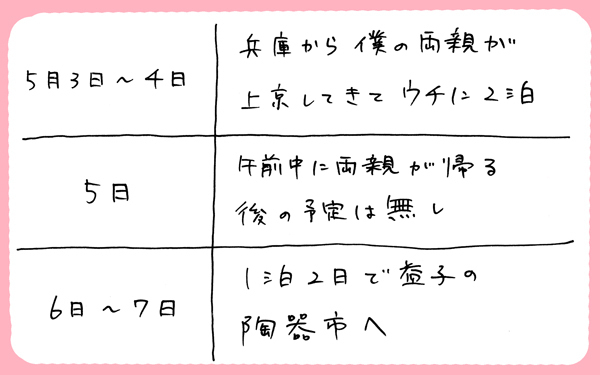 5月3日～4日
兵庫から僕の両親が
上京してきてウチに2泊
5日
午前中に両親が帰る
後の予定は無し
6日～7日
1泊2日で益子の
陶器市へ